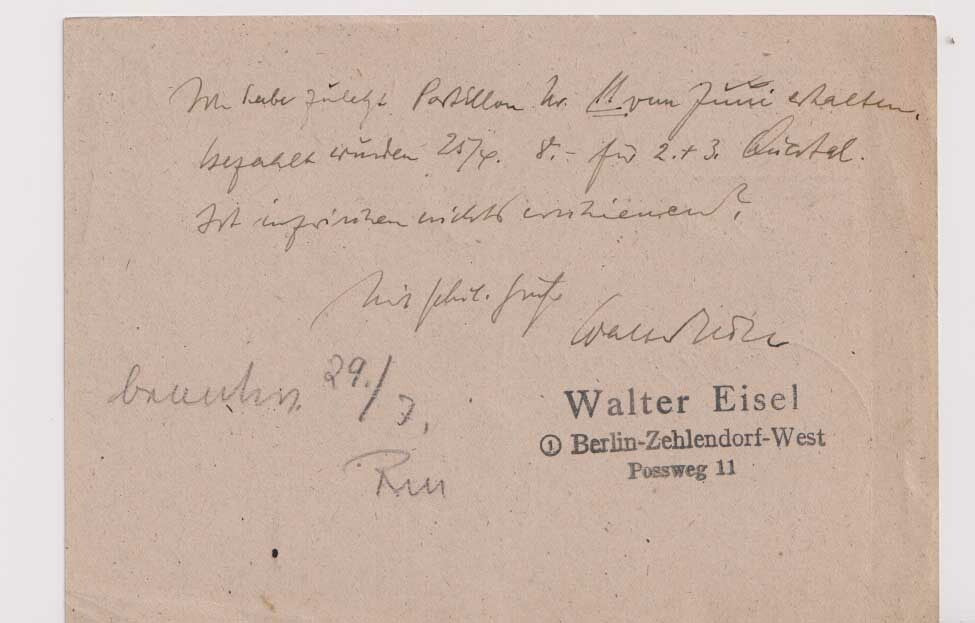 Ich habe zuletzt Postillon Nr. 11. vom Juni erhalten.
bezahlt wurden 25/4. 8.- für 2. + 3. Quartal.
Ist inzwischen nichts erschienen?
Mit phil. Grüße
Walter Eisel
beantw. 29./7.
Rm
Walter Eisel
① Berlin-Zehlendorf-West
Possweg 11